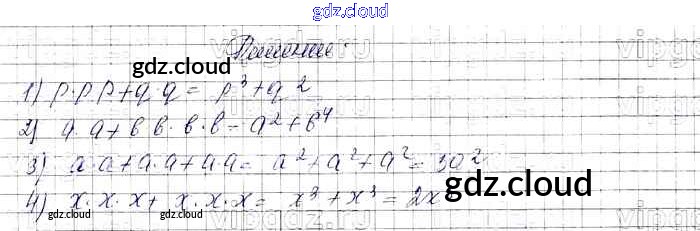 gdz.cloud
Решение:
1) p·p·p+q·q= p³+q²
2) a·a+b·b·b·b=a²+b⁴
3) a·a+a·a+a·a= a²+a²+a²=3a²
4) x·x·x+ x·x·x= x³+x³=2x
gdz.cloud
gdz.cloud
gdz.cloud
gdz.cloud
gdz.cloud